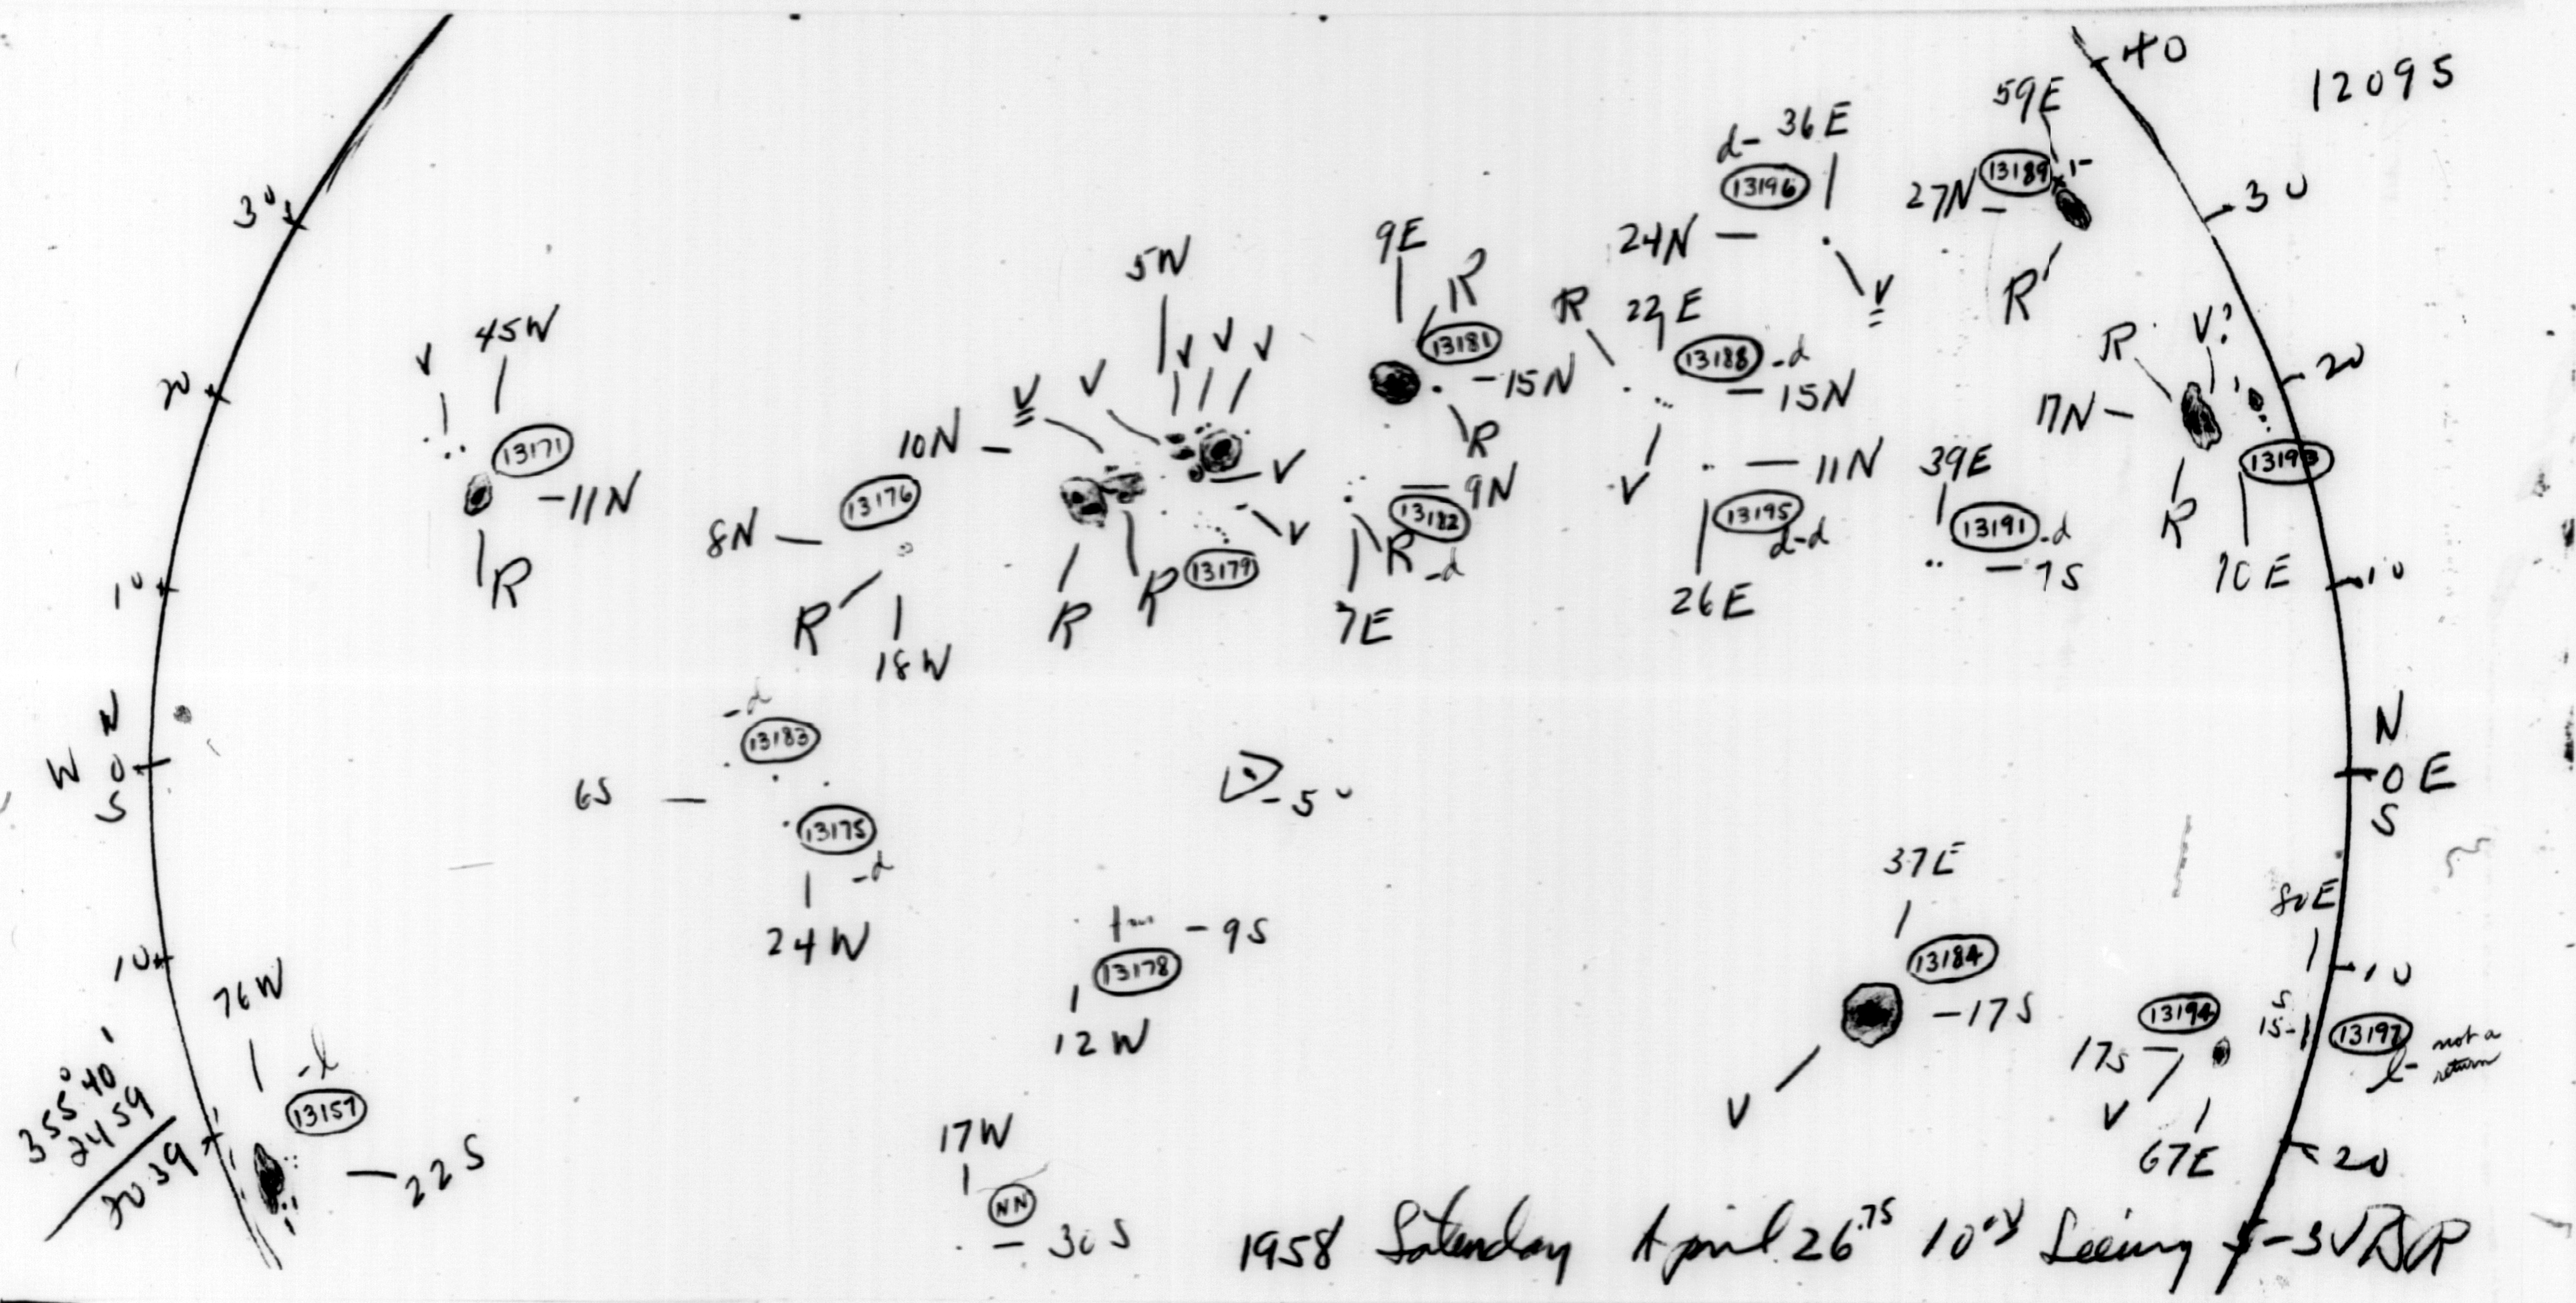 40
12095
59E
d- 36E
13196
27N - 13189 1-
30
30
24N -
V
R
9E
R
5W
45W
V
V V V
V
V
R
22E
13181
13188 -d
-15N
- 15N
R
V?
20
20
17N -
13171
-11N
R
10N -
8N -
13176
V
V
R
- 9N
13182
-d
R
7E
V
- 11N
13195
d-d
26E
39E
13191 -d
- 7S
13193
R
70E
10
10
R
18W
R
R
13179
-d
13183
N
W 0
S
6S -
13175
-d
24W
N
0 E
S
37E
80E
10
10
- 9S
13178
12W
13184
-17S
V
13194
17S -
V
67E
S
15-
13197
l- not a
return
76W
-l
13157
- 22S
355° 40'
24 59
20 39
17W
NN
- 30S
20
1958 Saturday April 26.75 Seeing